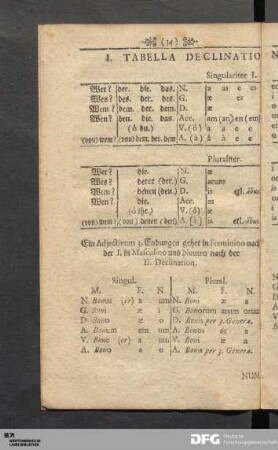 (14)
I. TABELLA DECLINATIO
Singulariter I.
Wer? der. die. das. N. a as e es
Wes? des. der. des. G. æ es
Wem? dem. der. dem. D. æ
Wen? den. die. das. Acc. am (an) en (em)
(ô du.) V. (ô) a
(von) wem? (von) dem. der. dem A. (à) â â e e
Pluraliter.
Wer? die. N. æ
Wes? derer (der.) G. arum
Wem? denen (den.) D. is
Wen? die. Acc. as
(ô ihr.) V. (ô) æ
(von) wem? (von) denen (den) A. (à) is
Ein Adjectivum 3. Endungen gehet in Foeminino nach
der I. in Masculino und Neutro nach der
II. Declination.
Singul. Plural.
M. F. N. M. F. N.
N. Bonus (er) a um N. Boni æ a
G. Boni æ i G. Bonorum arum orum
D. Bono æ o D. Bonis per 3. Genera.
A. Bonum am um A. Bonos as a
V. Bone (er) a um V. Boni æ a
A. Bono a o A. Bonis per 3. Genera.
NUM.
DFG Deutsche
Forschungsgemeinschaft